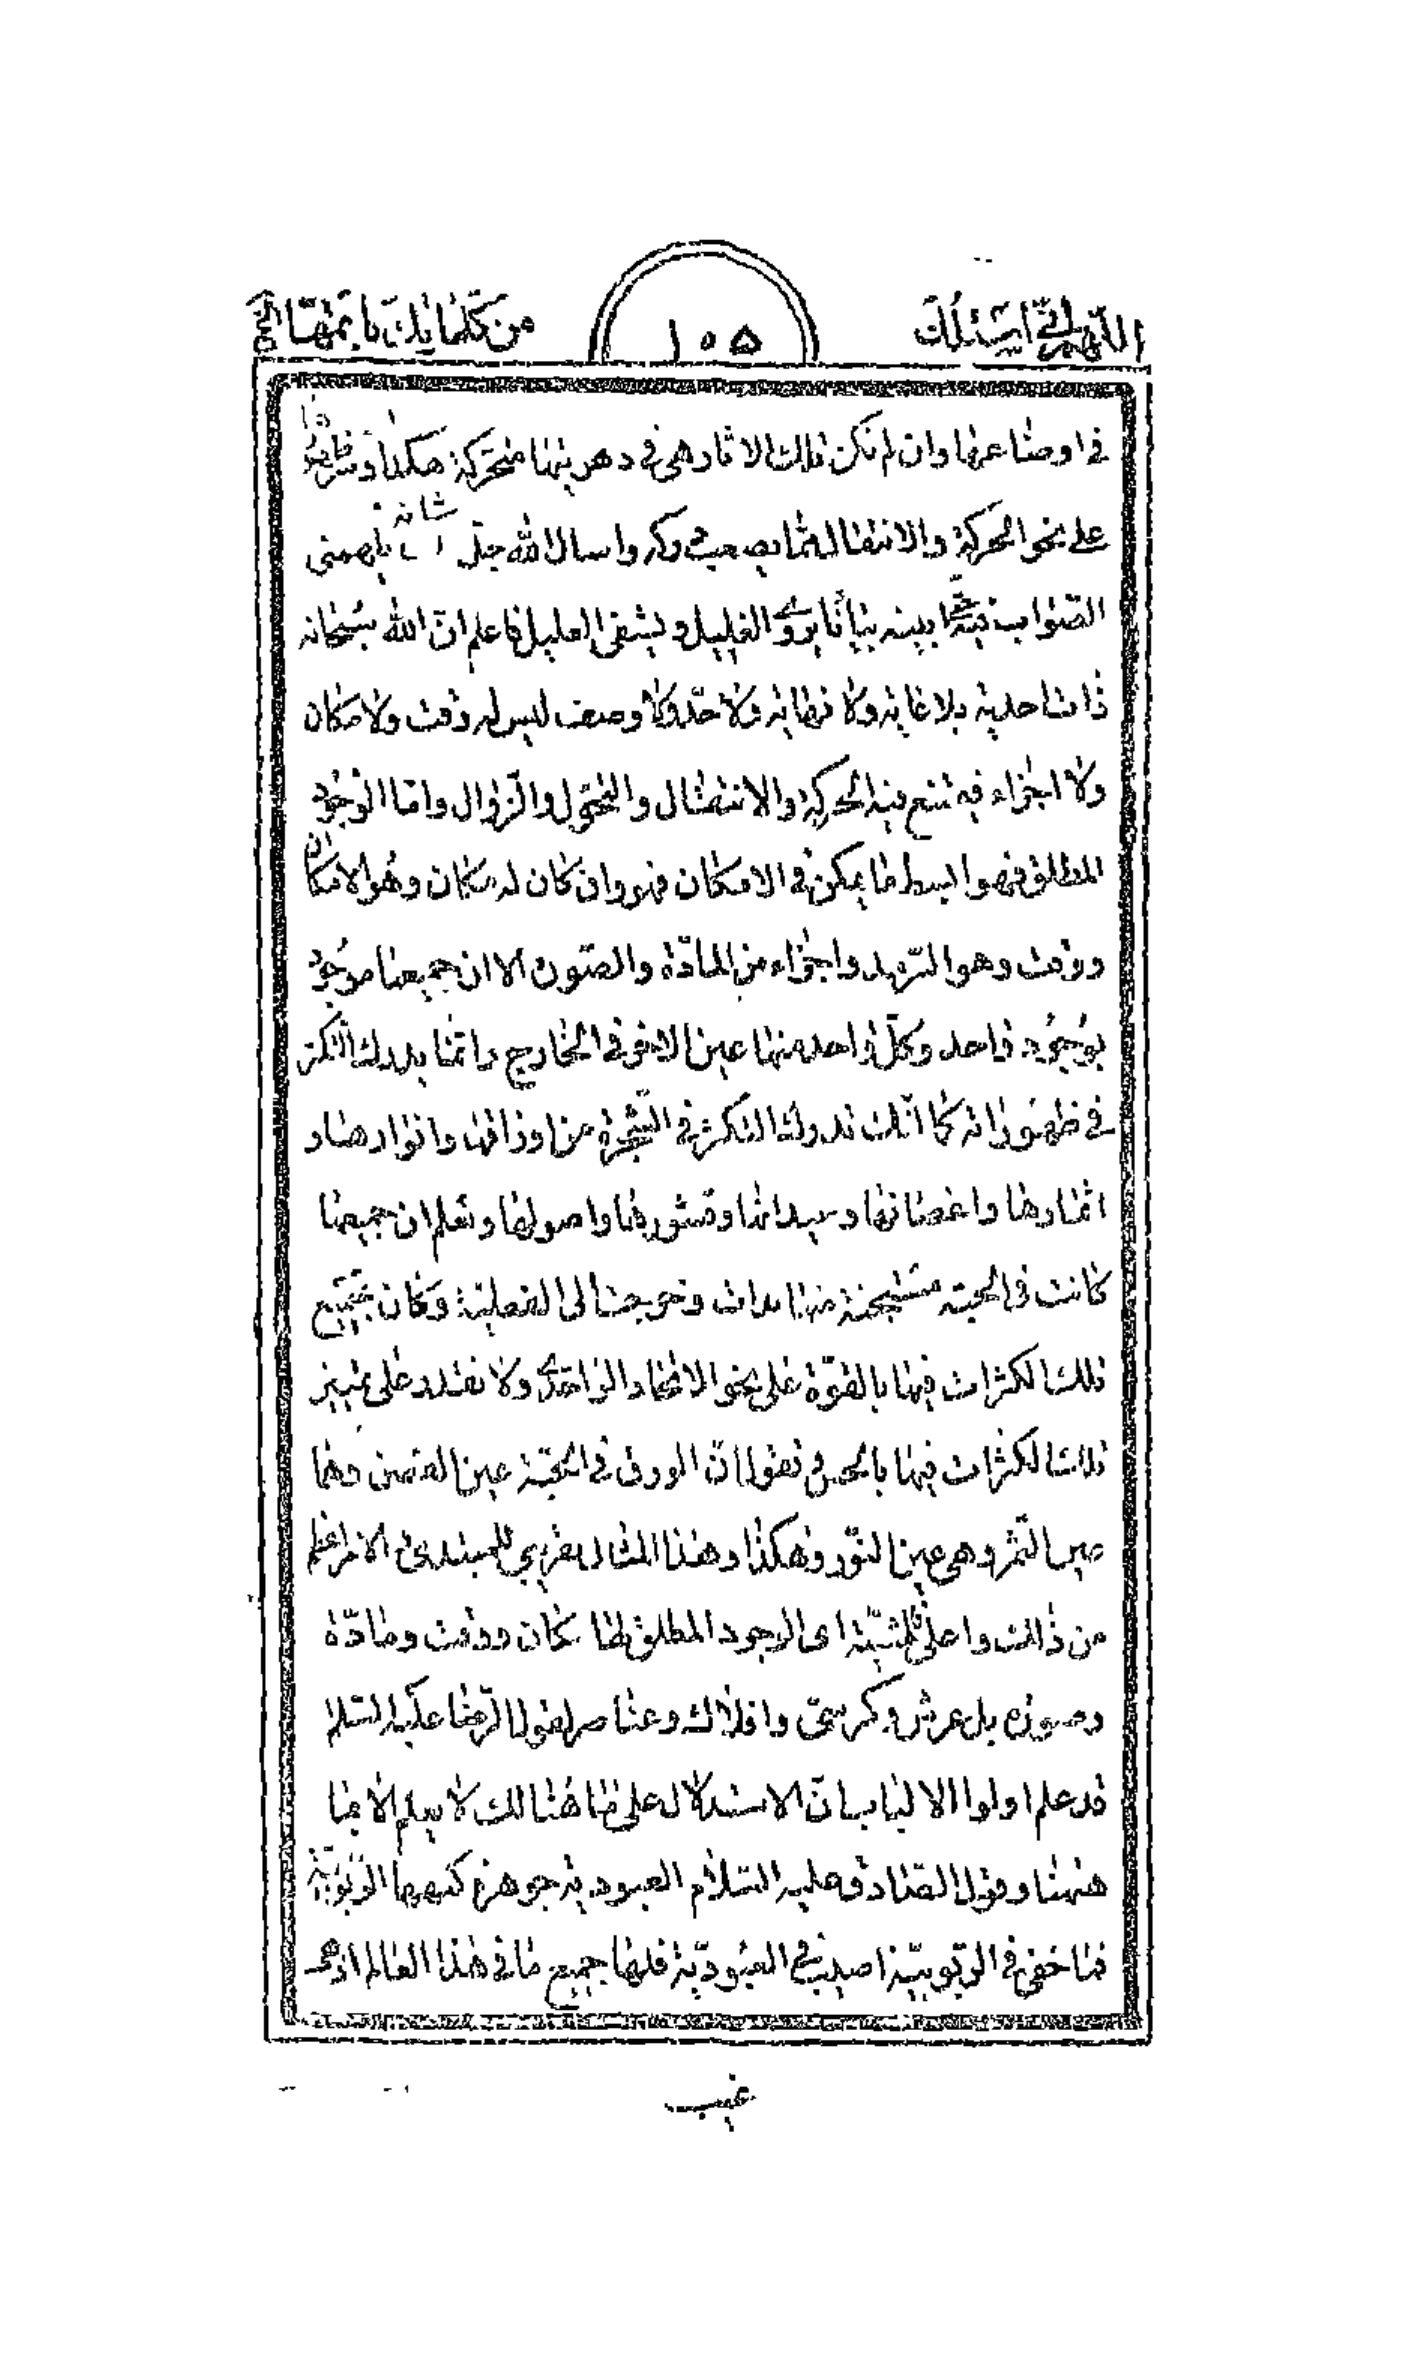 اللهم انی اسئلك ١٠٥ من كلماتك باتمها الخ
فی اوضاعها وان لم تكن تلك الاثار هی فی دهريتها متحركة هكذا
علی نحو الحركة والانتقال مما يصعب دركه واسال الله جل شانه ان يلهمنی
الصواب فيه حتی ابينه بيانا يروی الغليل ويشفی العليل فاعلم ان الله سبحانه
ذات احدية بلا غاية ولا نهاية ولا حد ولا وصف ليس له وقت ولا مكان
ولا اجزاء فيمتنع فيه الحركة والانتقال والتحول والزوال واما الوجود
المطلق فهو ابسط ما يمكن فی الامكان فهو وان كان له مكان وهو الامكان
ووقت وهو السرمد واجزاء من المادة والصورة الا ان جميعها موجود
بوجود واحد وكل واحد منها عين الاخر فی الخارج وانما يدرك التكثر
فی ظهوراته كما انك تدرك التكثر فی الشجرة من اوراقها وانوارها و
اثمارها واغصانها وسيدانها وقشورها واصولها وتعلم ان جميعها
كانت فی الحبة مستجنة منها بدات وخرجت الی الفعلية وكان جميع
تلك الكثرات فيها بالقوة علی نحو الاتحاد والواحدی ولا تقدر علی تميز
تلك الكثرات فيها بالحس فتقول ان الورق فی الحبة عين الغصن وهما
عين الثمر وهی عين النور وهكذا وهذا المثال تقريبی للمبتدی والامر اعظم
من ذلك واعلی فللمشية ای الوجود المطلق لها مكان ووقت ومادة
وصورة بل عرش وكرسی وافلاك وعناصر لقول الرضا عليه السلام
قد علم اولوا الالباب ان الاستدلال علی ما هنالك لا يعلم الا بما
هيهنا وقول الصادق عليه السلام العبودية جوهرة كنهها الربوبية
فما خفی فی الربوبية اصيب فی العبودية فلها جميع ما فی هذا العالم اذ هو
غيب